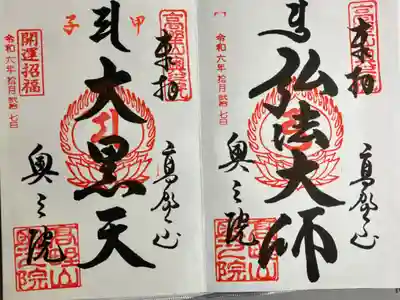 奉拝
高野山
弘法大師
奥之院
高野山奥之院
令和六年拾月弐拾七日
奉拝
高野山
甲子
大黒天
奥之院
高野山奥之院
開運招福
令和六年拾月弐拾七日